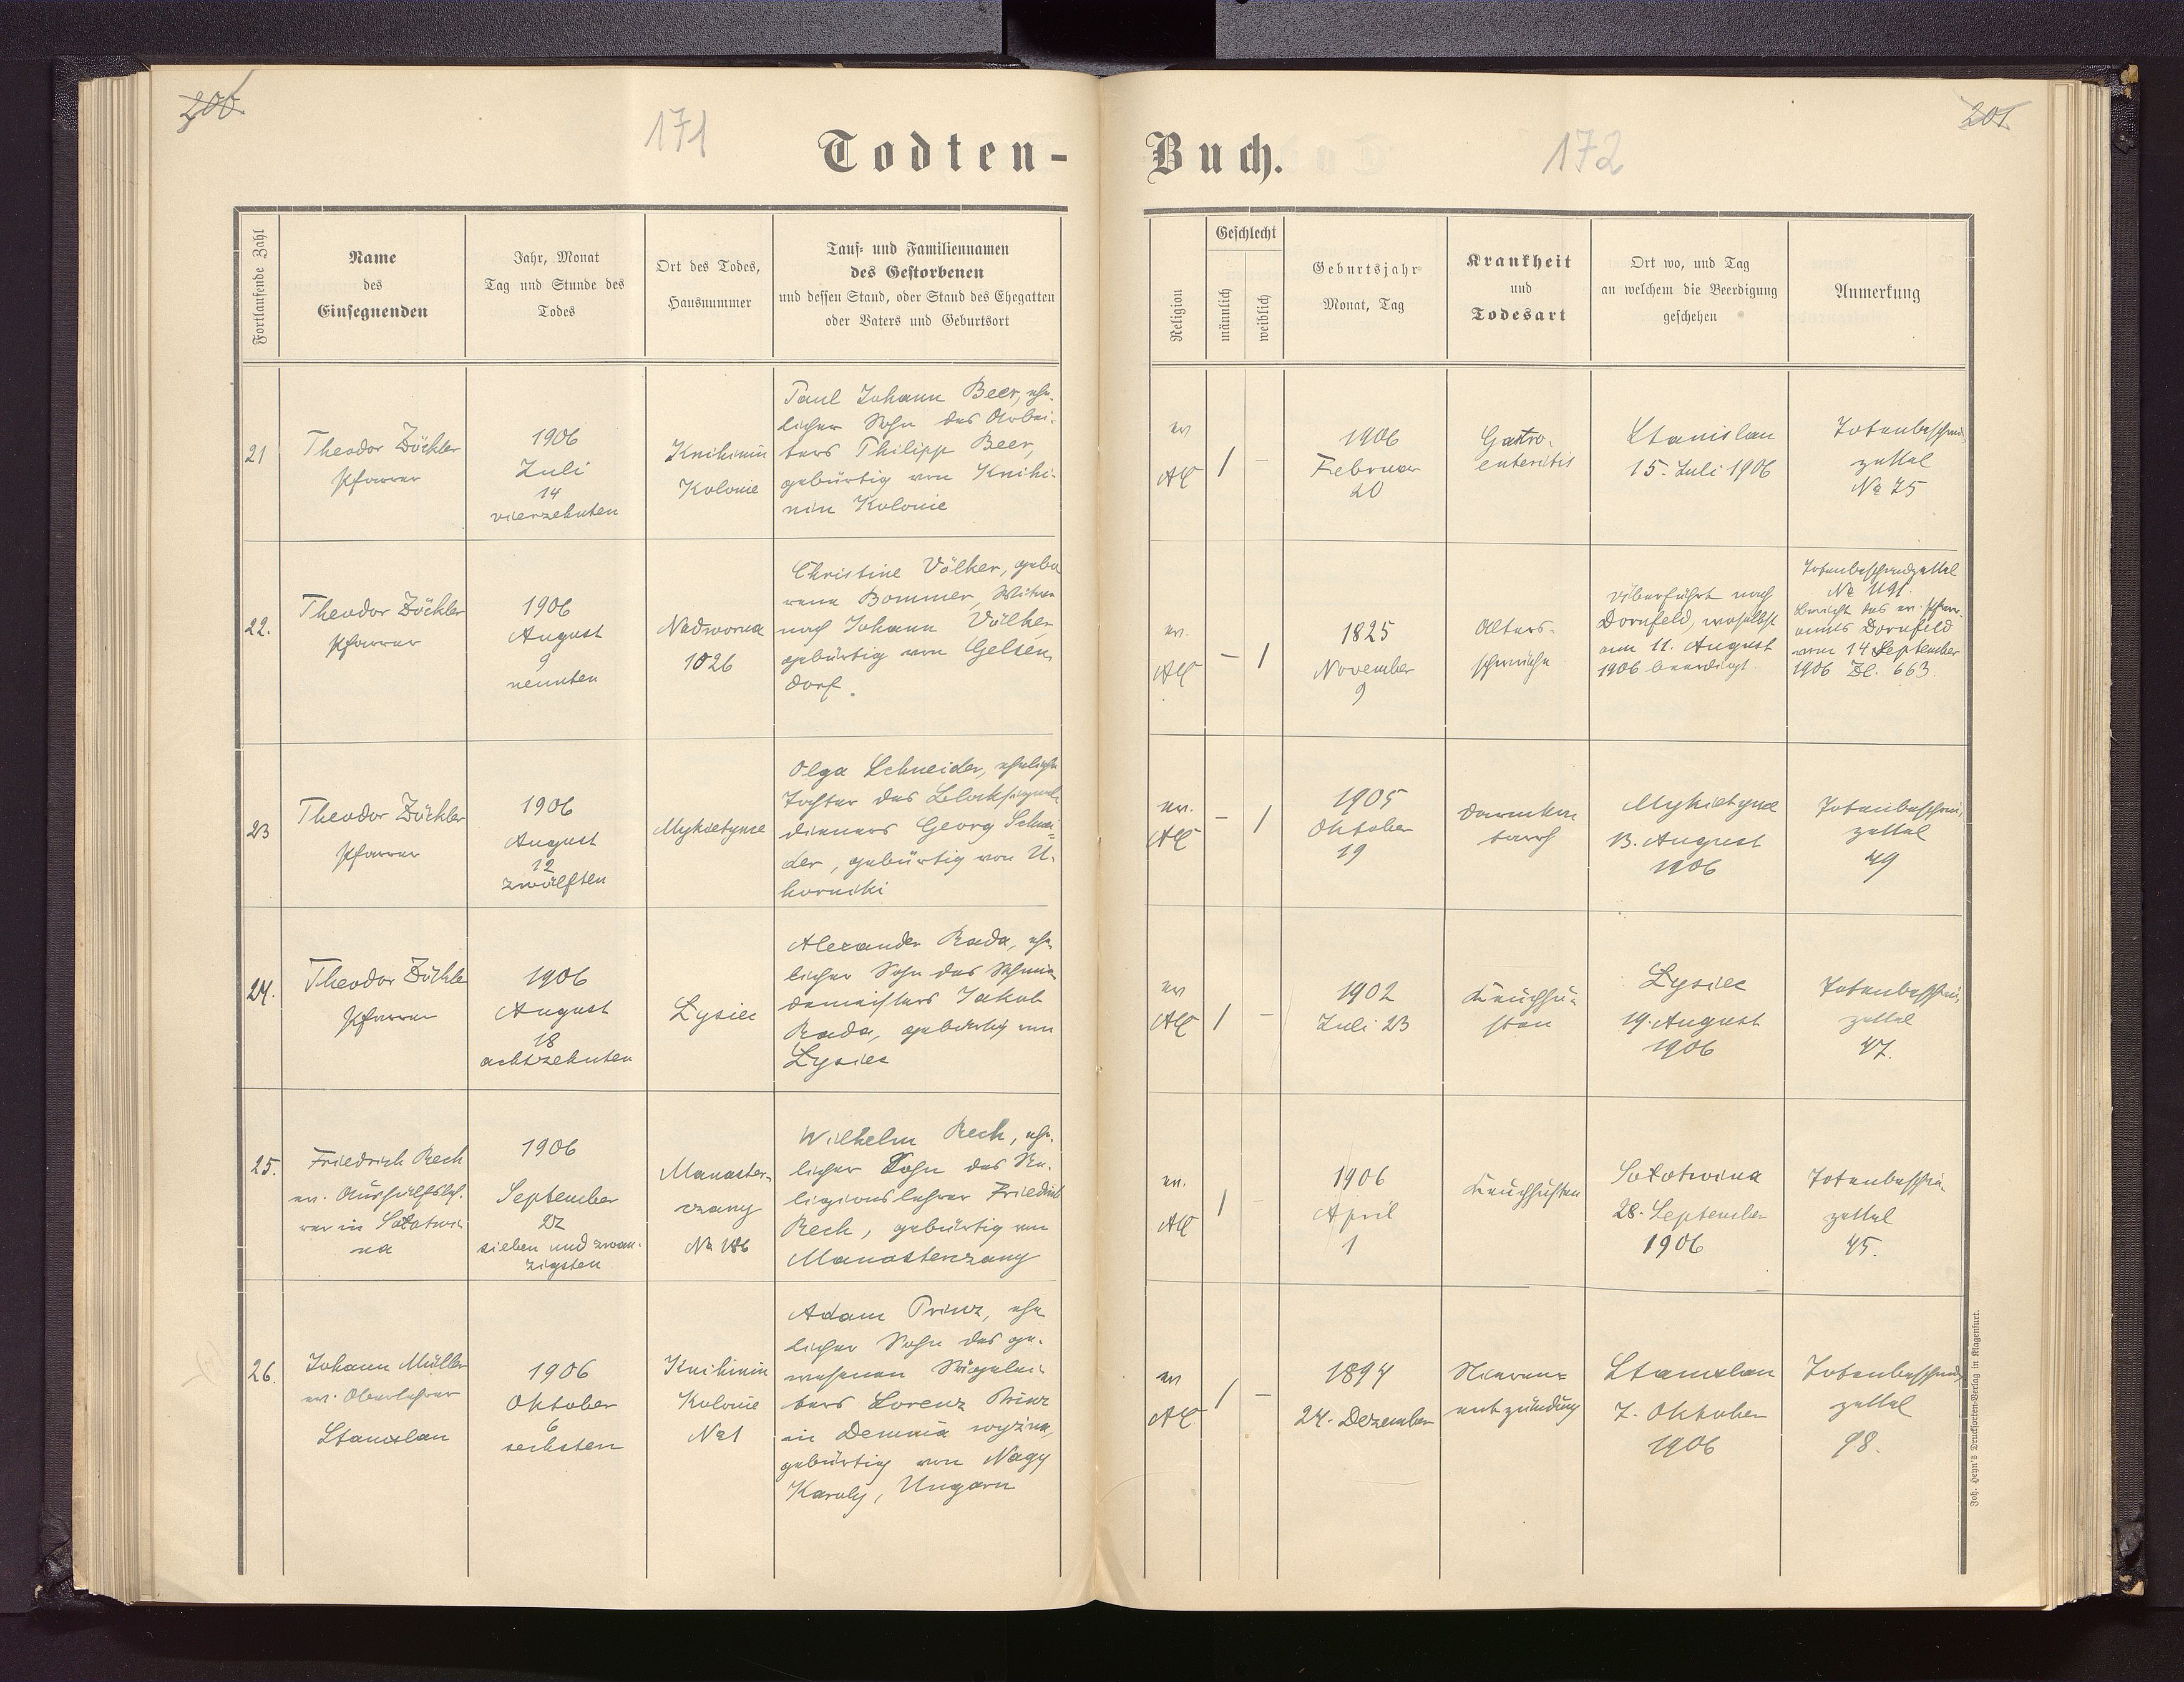 200.
171
Todten-
Fortlaufende Zahl
Name
des
Einsegnenden
Jahr, Monat
Tag und Stunde des
Todes
Ort des Todes,
Hausnummer
Tauf- und Familiennamen
des Gestorbenen
und dessen Stand, oder Stand des Ehegatten
oder Vaters und Geburtsort
21
Theodor Zöckler
Pfarrer
1906
Juli
14
vierzehnten
Knihinin
Kolonie
Paul Johann Beer, ehe-
licher Sohn des Arbei-
ters Philipp Beer,
gebürtig von Knihi-
nin Kolonie
22.
Theodor Zöckler
Pfarrer
1906
August
9
neunten
Nadworna
1026
Christine Völker, gebo
rene Bommer, Witwe
nach Johann Völker,
gebürtig von Gelsen
dorf.
23
Theodor Zöckler
Pfarrer
1906
August
12
zwölften
Mykietynce
Olga Schneider, eheliche
Tochter des Blocksignal
dieners Georg Schnei-
der, gebürtig von U-
horniki
24.
Theodor Zöckler
Pfarrer
1906
August
18
achtzehnten
Lysiec
Alexander Rada, ehe-
licher Sohn des Schmie-
demeisters Jakob
Rada, gebürtig von
Lysiec
25.
Friedrich Rech
ev. Aushülfsleh-
rer in Sołotwi-
na
1906
September
27
sieben und zwan-
zigsten
Manaster-
czany
№ 186
Wilhelm Rech, ehe-
licher Sohn des Re-
ligionslehrer Friedrich
Rech, gebürtig von
Manasterczany
26.
Johann Müller
ev. Oberlehrer
Stanislau
1906
Oktober
6
sechsten
Knihinin
Kolonie
№ 1
Adam Prinz, ehe
licher Sohn des ge-
wesenen Sägelei-
ters Lorenz Prinz
in Demnia wyżna,
gebürtig von Nagy
Karoly, Ungarn
Buch.
172
201.
Religion
Geschlecht
männlich
weiblich
Geburtsjahr
Monat, Tag
Krankheit
und
Todesart
Ort wo, und Tag
an welchem die Beerdigung
geschehen
Anmerkung
ev
AC
1
-
1906
Februar
20
Gastro-
enteritis
Stanislau
15. Juli 1906
Totenbeschau
zettel
№ 75
ev.
AC
-
1
1825
November
9
Alters-
schwäche
überführt nach
Dornfeld, woselbst
am 11. August
1906 beerdigt.
Totenbeschauzettel
№ 1191.
Bericht des ev. Pfarr-
amts Dornfeld
vom 14 September
1906 Zl. 663.
ev.
AC
-
1
1905
Oktober
19
Darmka
tarrh
Mykietynce
13. August
1906
Totenbeschau
zettel
49
ev
AC
1
-
1902
Juli 23
Keuchhu-
sten
Lysiec
19. August
1906
Totenbeschau
zettel
47.
ev.
AC
1
-
1906
April
1
Keuchhusten
Sołotwina
28. September
1906
Totenbeschau
zettel
45.
ev
AC
1
-
1894
24. Dezember
Nieren-
entzündung
Stanislau
7. Oktober
1906
Totenbeschau
zettel
98.
Joh. Heyn's Drucksorten-Verlag in Klagenfurt.